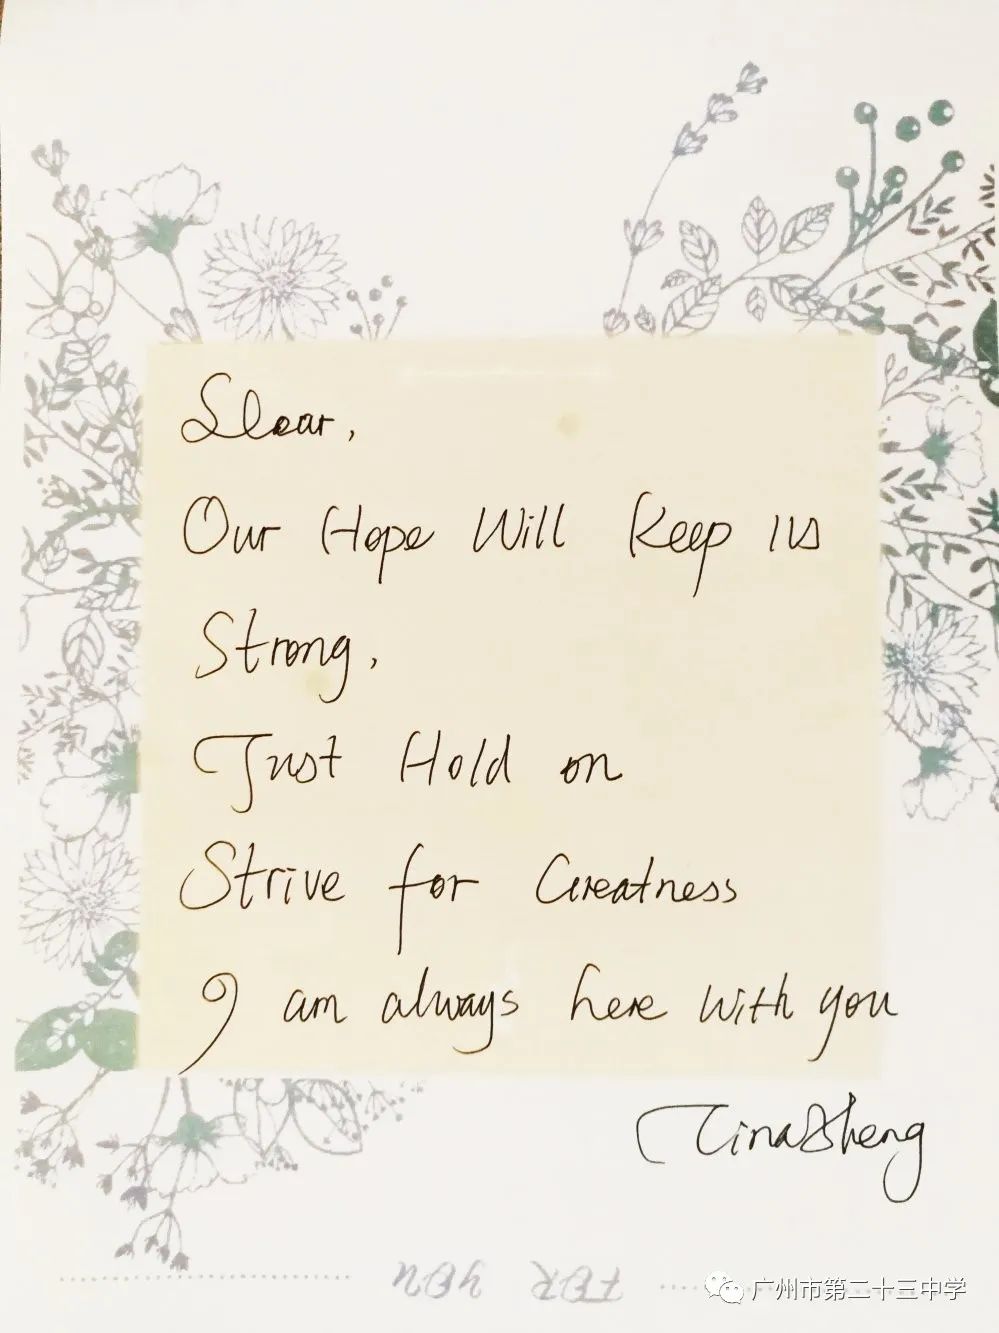 Dear,
Our Hope Will Keep us
Strong,
Just Hold on
Strive for Greatness
I am always here with you
Tina Zheng
FOR YOU
广州市第二十三中学